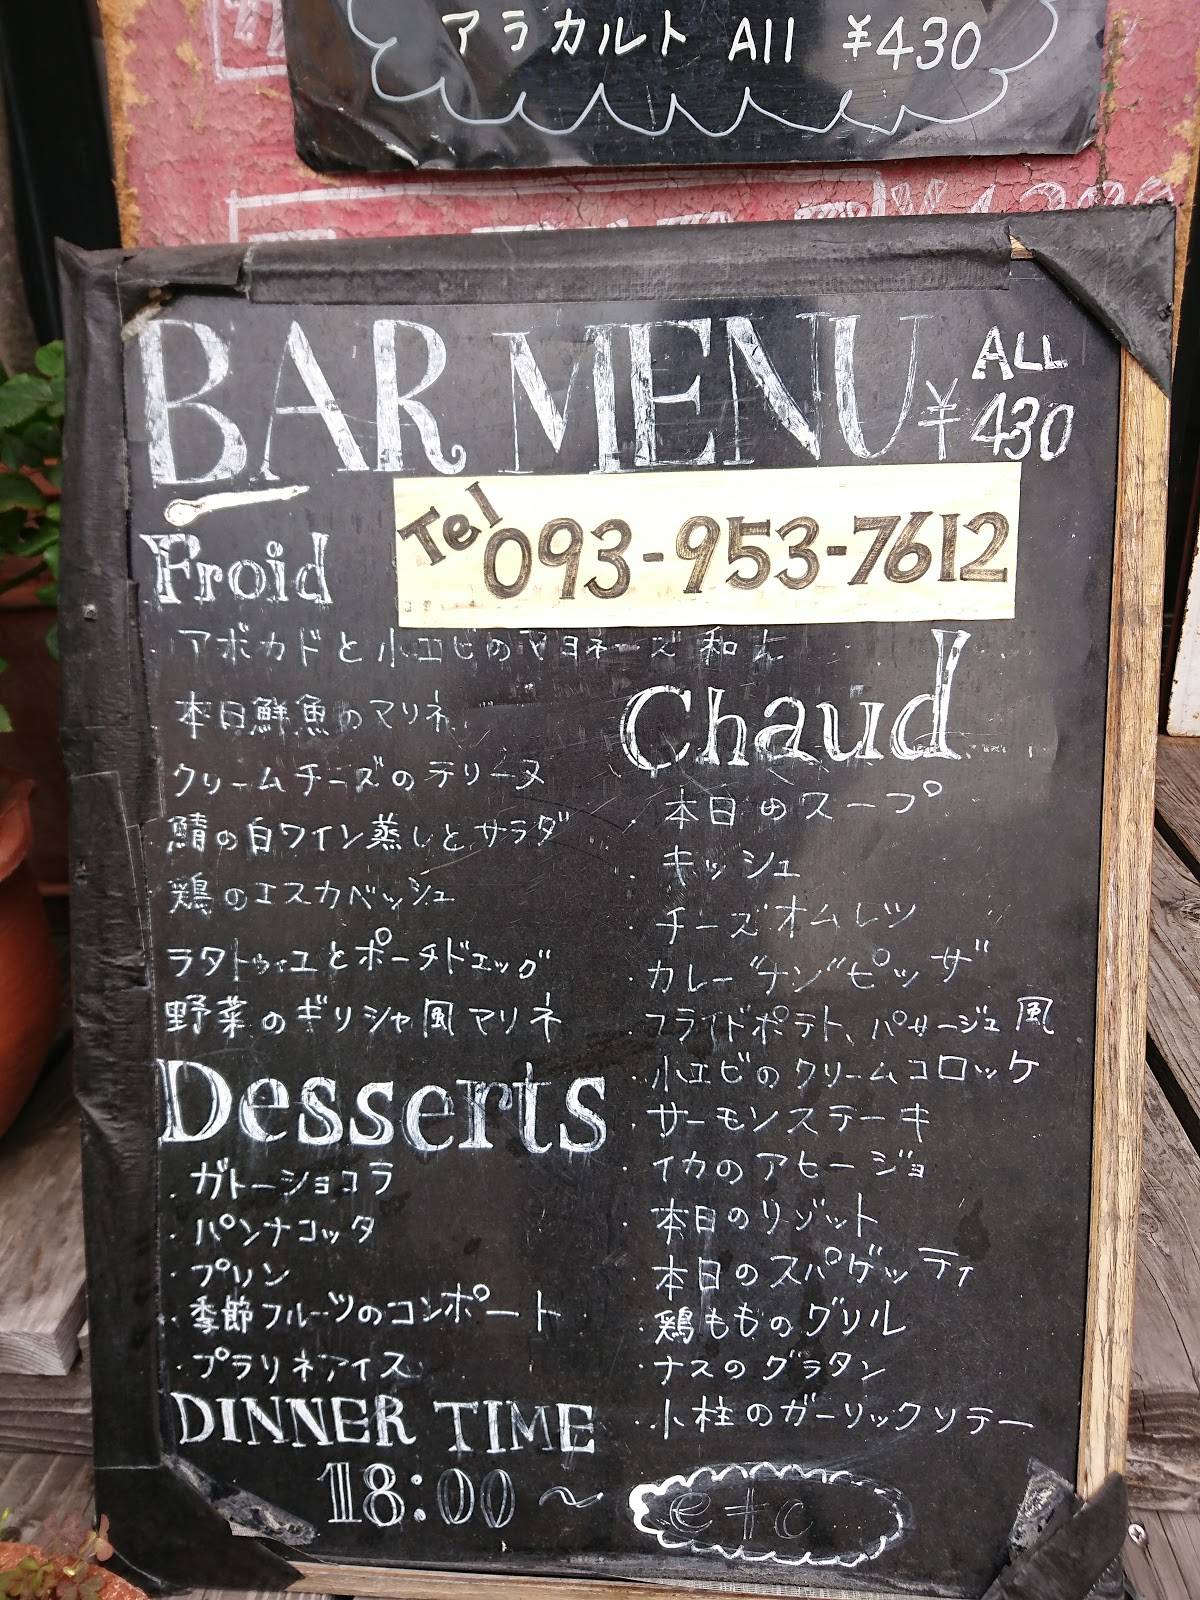 アラカルト All ¥430
BAR MENU ALL ¥430
Tel 093-953-7612
Froid
・アボカドと小エビのマヨネーズ和え
本日鮮魚のマリネ
クリームチーズのテリーヌ
鯖の白ワイン蒸しとサラダ
鶏のエスカベッシュ
ラタトゥイユとポーチドエッグ
野菜のギリシャ風マリネ
Chaud
・本日のスープ
・キッシュ
・チーズオムレツ
・カレー"ナン"ピッザ
・フライドポテト、パサージュ風
・小エビのクリームコロッケ
・サーモンステーキ
・イカのアヒージョ
・本日のリゾット
・本日のスパゲッティ
・鶏もものグリル
・ナスのグラタン
・小柱のガーリックソテー
etc
Desserts
・ガトーショコラ
・パンナコッタ
・プリン
・季節フルーツのコンポート
・プラリネアイス
DINNER TIME
18:00〜